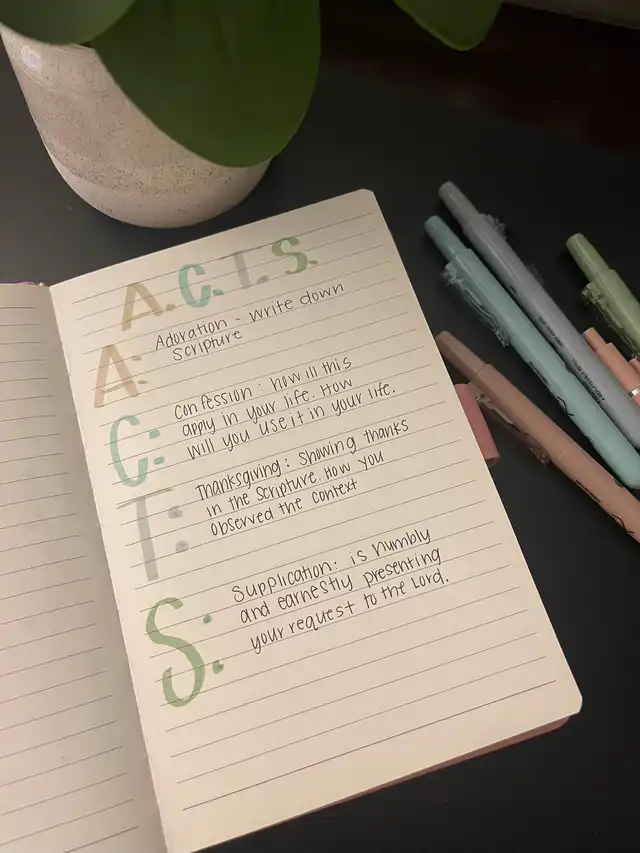 A.C.T.S.
A: Adoration - write down
Scripture
C: Confession: how ill this
apply in your life. How
will you use it in your life.
T: Thanksgiving: Showing thanks
in the Scripture. How you
observed the context
S: Supplication: is humbly
and earnestly presenting
your request to the Lord.